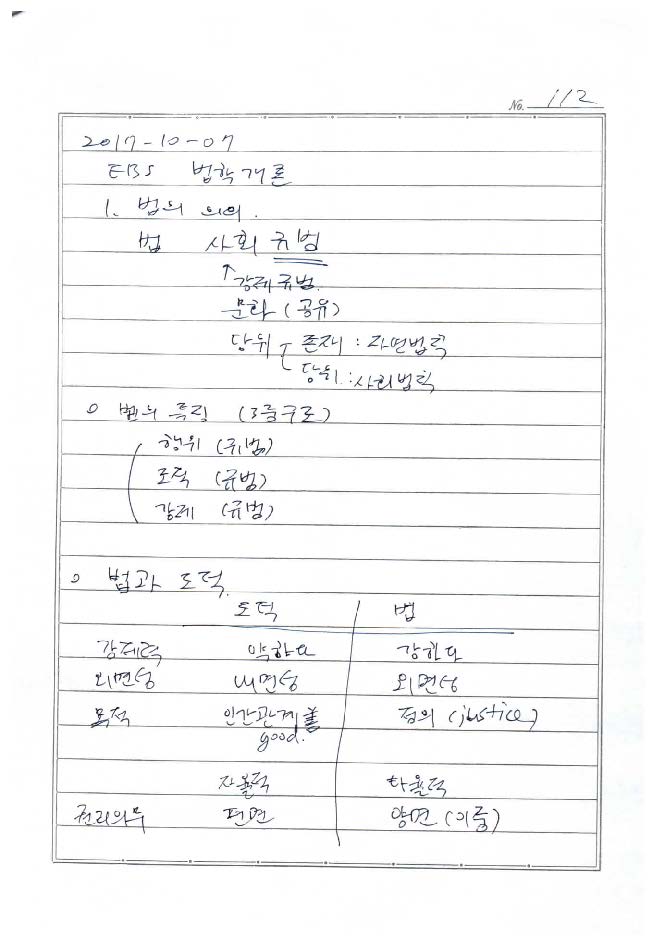 No. 112
2017-10-07
EBS 법학개론
1. 법의 의의.
법 사회 규범
↑강제규범.
문화 (공유)
당위 존재 : 자연법칙
당위 : 사회법칙
○ 법의 특징 (3중구조)
행위 (규범)
조직 (규범)
강제 (규범)
○ 법과 도덕.
도덕 법
강제력 약하다 강한다
외면성 내면성 외면성
목적 인간관계 善 정의 (justice)
good.
자율적 타율적
권리의무 편면 양면 (이중)